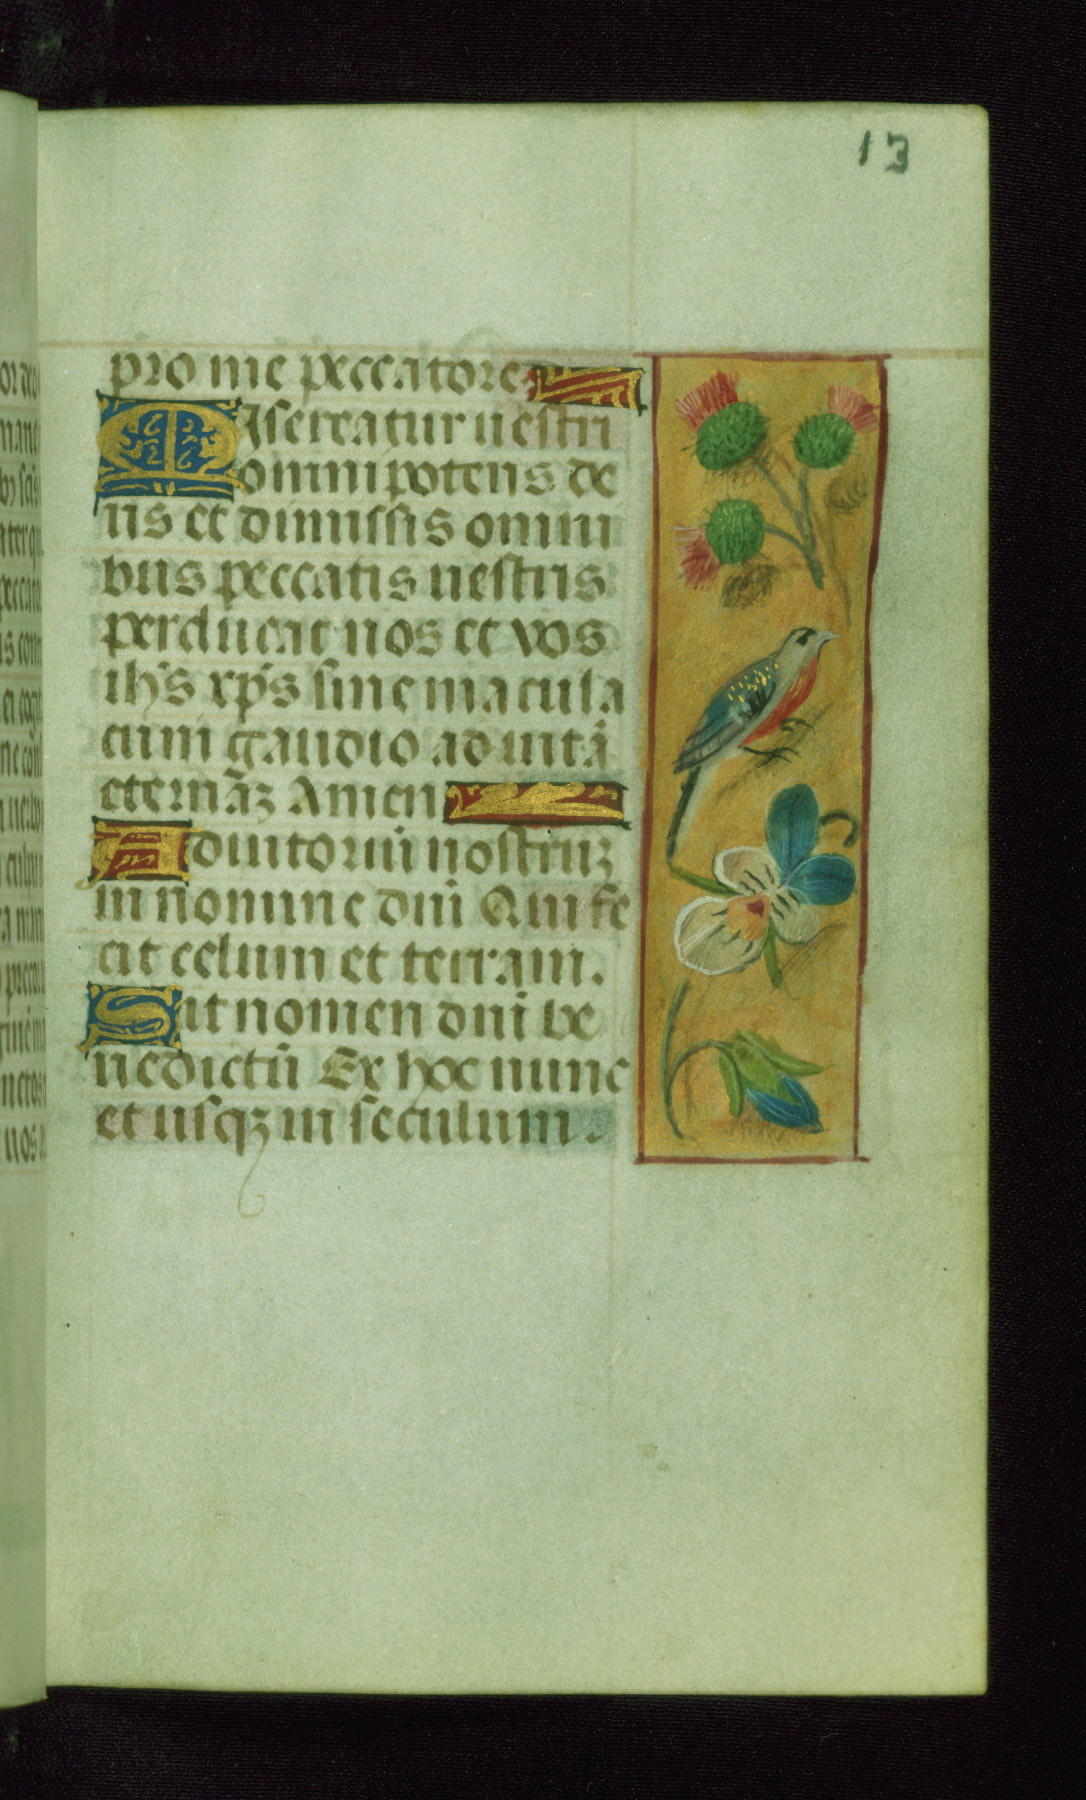 13
pro me peccatore
Misereatur uestri
omnipotens de
us et dimissis omni
bus peccatis uestris
perducat nos et vos
ihs xps sine macula
cum gaudio ad uitã
eternãʒ Amen
Adiutoriũ nostruʒ
in nomine dñi Qui fe
cit celum et terram.
Sit nomen dñi be
nedictũ Ex hoc nunc
et usqʒ in seculum.